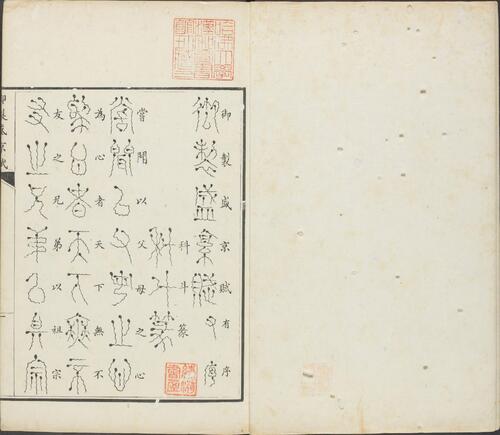 御製盛京賦有序
科斗篆
嘗聞以父母之心
為心者天下無不
友之兄弟以祖宗
御製盛京賦